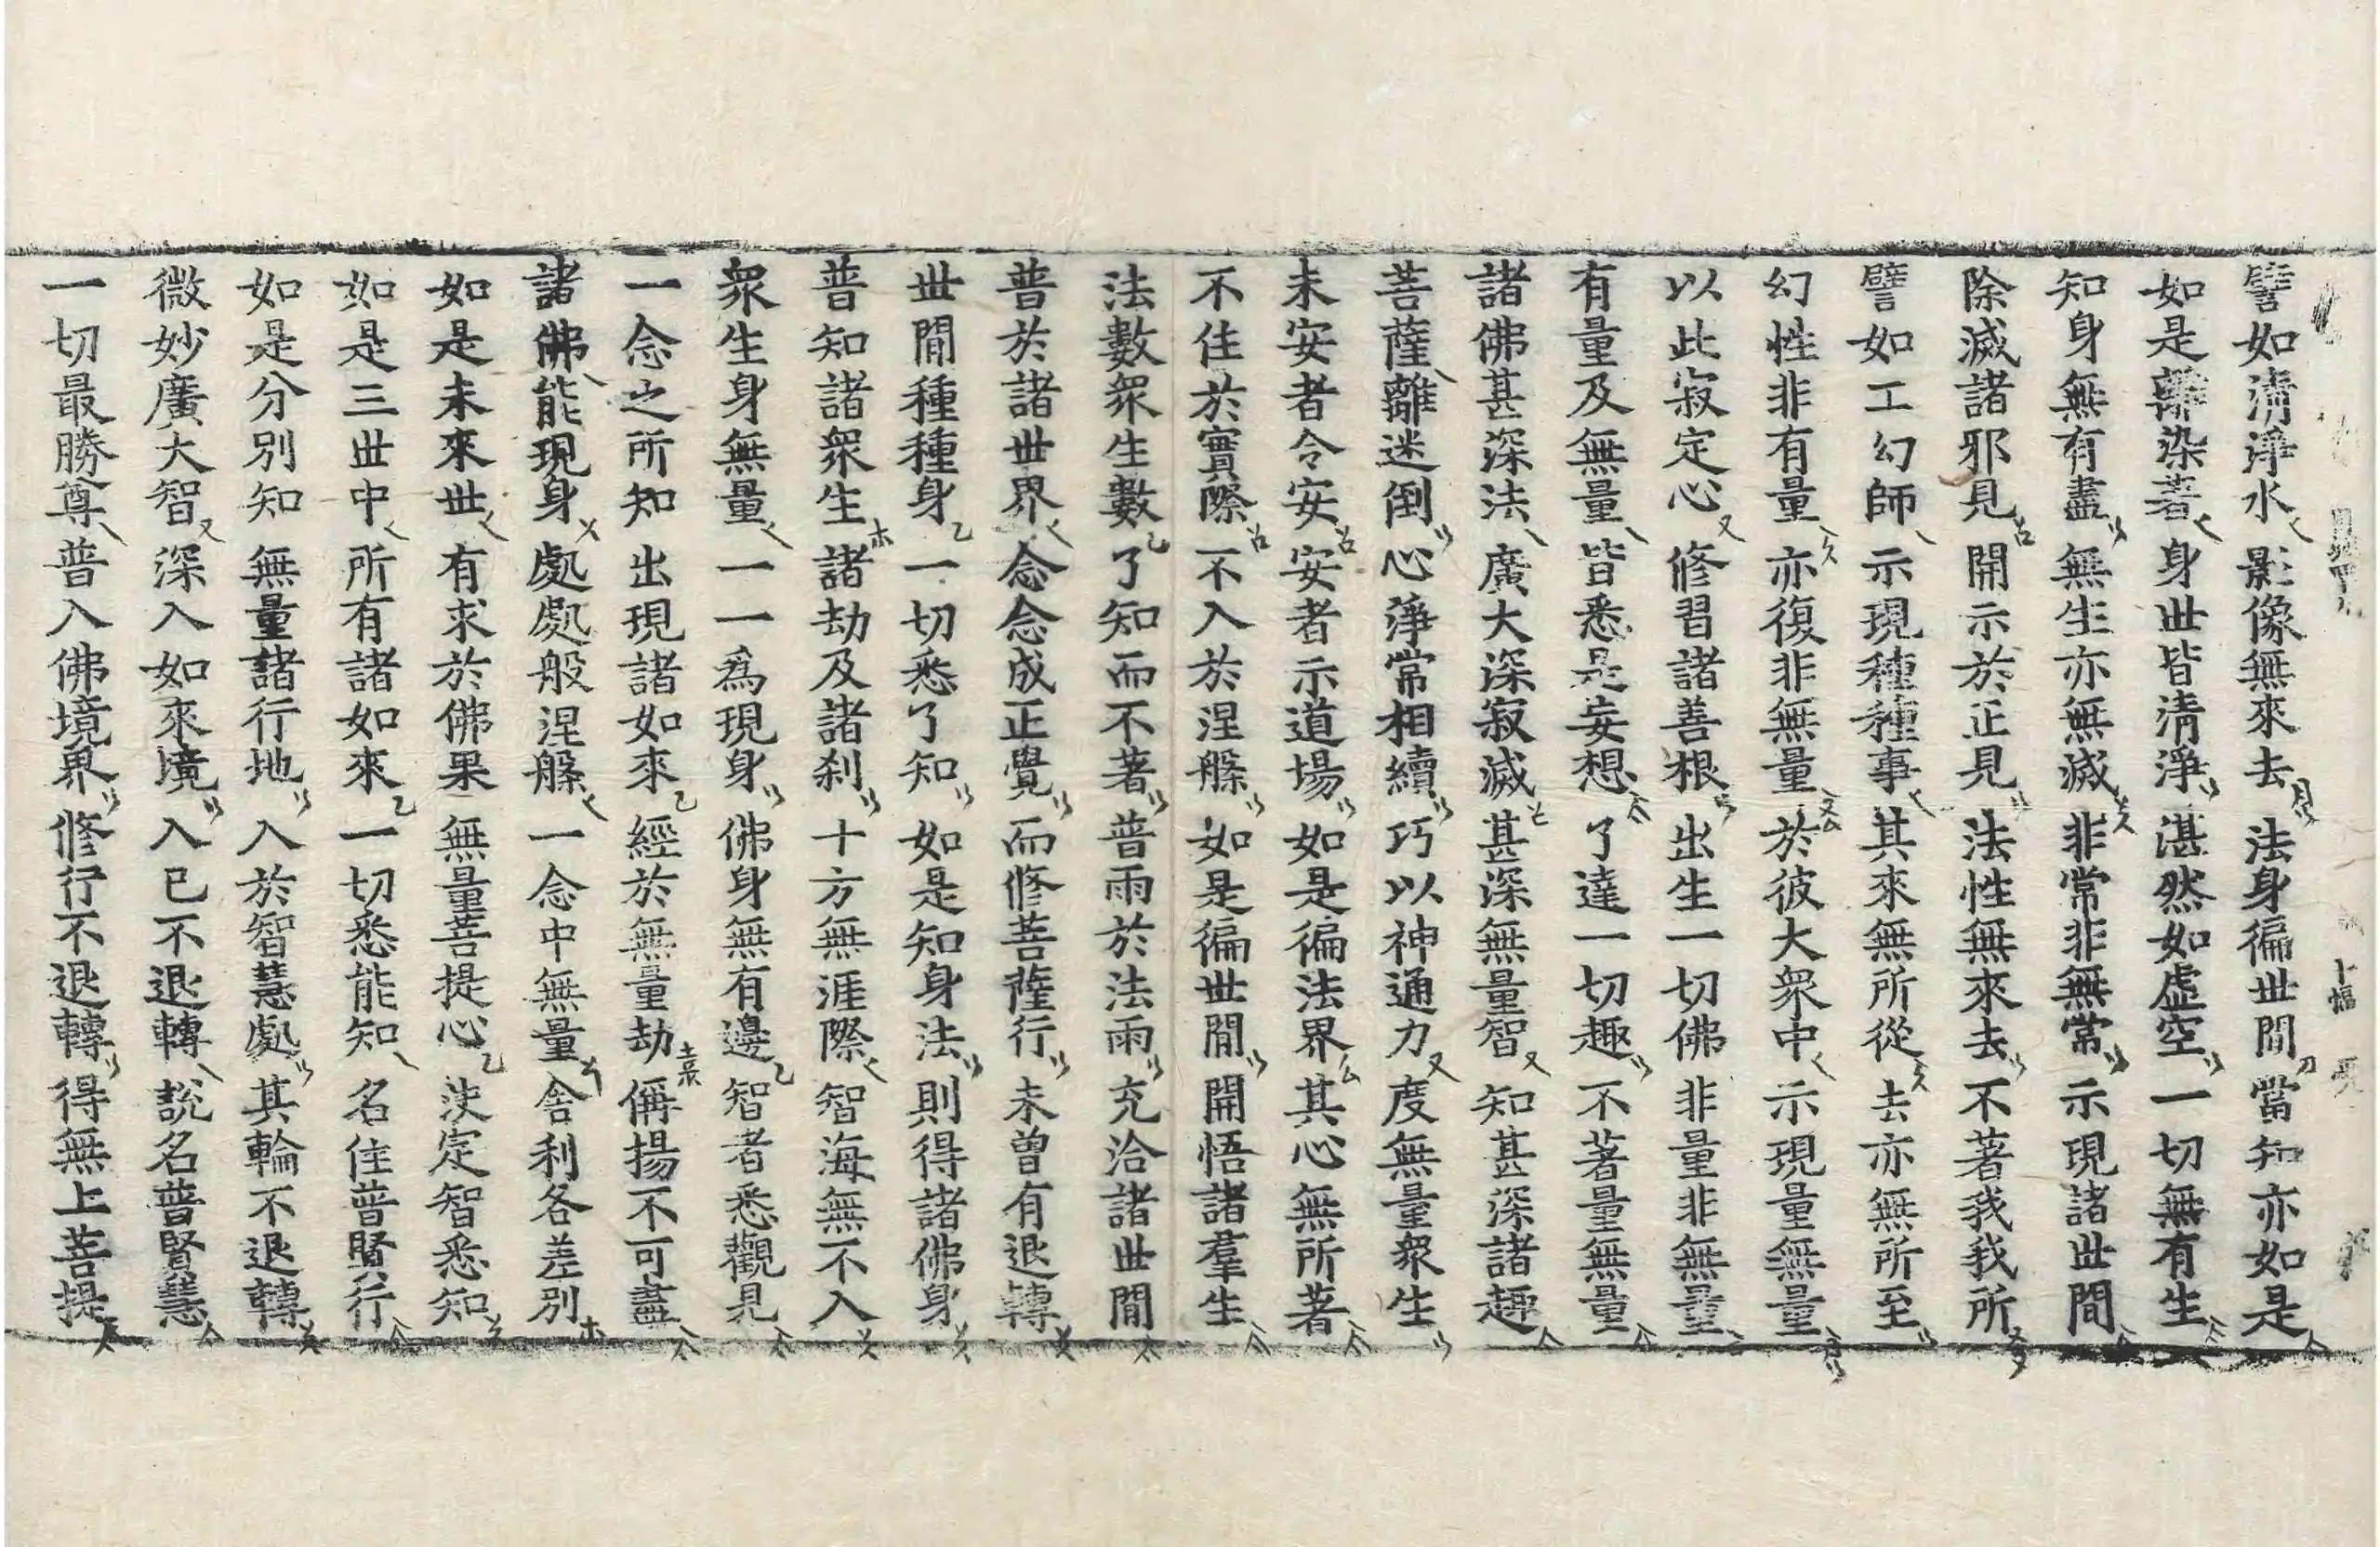 譬如清淨水 影像無來去 法身徧世間 當知亦如是
如是離染著 身世皆清淨 湛然如虛空 一切無有生
知身無有盡 無生亦無滅 非常非無常 示現諸世間
除滅諸邪見 開示於正見 法性無來去 不著我我所
譬如工幻師 示現種種事 其來無所從 去亦無所至
幻性非有量 亦復非無量 於彼大衆中 示現量無量
以此寂定心 修習諸善根 出生一切佛 非量非無量
有量及無量 皆悉是妄想 了達一切趣 不著量無量
諸佛甚深法 廣大深寂滅 甚深無量智 知甚深諸趣
菩薩離迷倒 心淨常相續 巧以神通力 度無量衆生
未安者令安 安者示道場 如是徧法界 其心無所著
不住於實際 不入於涅槃 如是徧世間 開悟諸羣生
法數衆生數 了知而不著 普雨於法雨 充洽諸世間
普於諸世界 念念成正覺 而修菩薩行 未曾有退轉
世間種種身 一切悉了知 如是知身法 則得諸佛身
普知諸衆生 諸劫及諸刹 十方無涯際 智海無不入
衆生身無量 一一爲現身 佛身無有邊 智者悉觀見
一念之所知 出現諸如來 經於無量劫 偁揚不可盡
諸佛能現身 處處般涅槃 一念中無量 舍利各差別
如是未來世 有求於佛果 無量菩提心 決定智悉知
如是三世中 所有諸如來 一切悉能知 名住普賢行
如是分別知 無量諸行地 入於智慧處 其輪不退轉
微妙廣大智 深入如來境 入已不退轉 說名普賢慧
一切最勝尊 普入佛境界 修行不退轉 得無上菩提